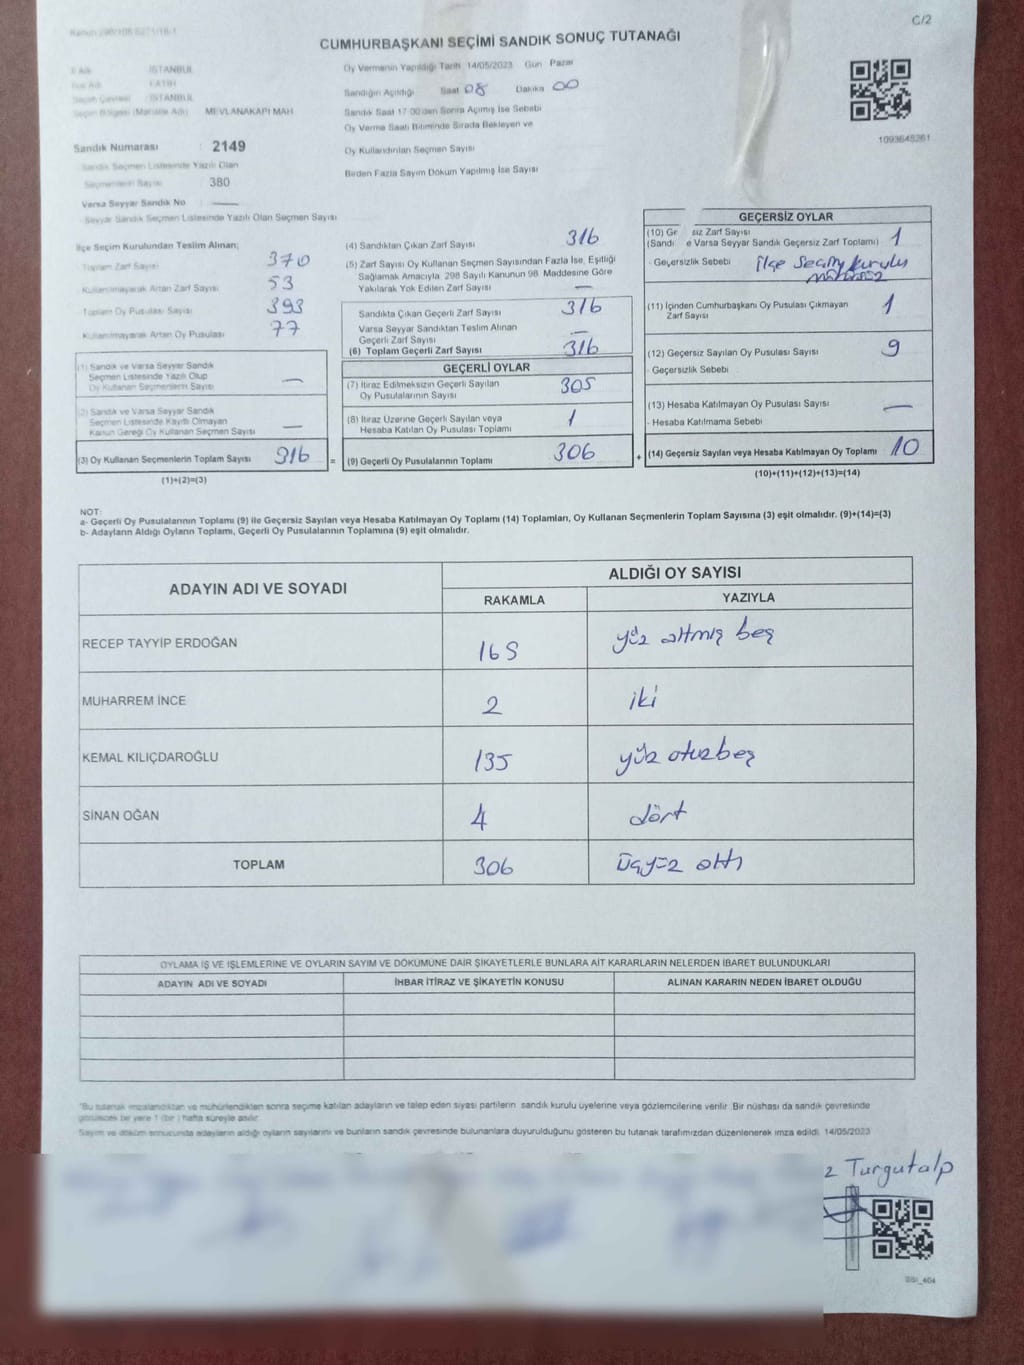 C/2
CUMHURBAŞKANI SEÇİMİ SANDIK SONUÇ TUTANAĞI
İSTANBUL
FATİH
İSTANBUL
Seçim Bölgesi (Mahalle Adı) MEVLANAKAPI MAH
Sandık Numarası : 2149
Sandık Seçmen Listesinde Yazılı Olan
Seçmenlerin Sayısı 380
Varsa Seyyar Sandık No
Seyyar Sandık Seçmen Listesinde Yazılı Olan Seçmen Sayısı
Oy Vermenin Yapıldığı Tarih 14/05/2023 Gün Pazar
Sandığın Açıldığı Saat 08 Dakika 00
Sandık Saat 17:00'den Sonra Açılmış İse Sebebi
Oy Verme Saati Bitiminde Sırada Bekleyen ve
Oy Kullandırılan Seçmen Sayısı
Birden Fazla Sayım Döküm Yapılmış İse Sayısı
1093645261
İlçe Seçim Kurulundan Teslim Alınan;
Toplam Zarf Sayısı 370
Kullanılmayarak Artan Zarf Sayısı 53
Toplam Oy Pusulası Sayısı 393
Kullanılmayarak Artan Oy Pusulası 77
(1) Sandık ve Varsa Seyyar Sandık
Seçmen Listesinde Yazılı Olup
Oy Kullanan Seçmenlerin Sayısı —
(2) Sandık ve Varsa Seyyar Sandık
Seçmen Listesinde Kayıtlı Olmayan
Kanun Gereği Oy Kullanan Seçmen Sayısı —
(3) Oy Kullanan Seçmenlerin Toplam Sayısı 316 =
(1)+(2)=(3)
(4) Sandıktan Çıkan Zarf Sayısı 316
(5) Zarf Sayısı Oy Kullanan Seçmen Sayısından Fazla İse, Eşitliği
Sağlamak Amacıyla 298 Sayılı Kanunun 98. Maddesine Göre
Yakılarak Yok Edilen Zarf Sayısı —
Sandıkta Çıkan Geçerli Zarf Sayısı 316
Varsa Seyyar Sandıktan Teslim Alınan
Geçerli Zarf Sayısı —
(6) Toplam Geçerli Zarf Sayısı 316
GEÇERLİ OYLAR
(7) İtiraz Edilmeksizin Geçerli Sayılan
Oy Pusulalarının Sayısı 305
(8) İtiraz Üzerine Geçerli Sayılan veya
Hesaba Katılan Oy Pusulası Toplamı 1
(9) Geçerli Oy Pusulalarının Toplamı 306 +
GEÇERSİZ OYLAR
(10) Ge siz Zarf Sayısı
(Sandı e Varsa Seyyar Sandık Geçersiz Zarf Toplamı) 1
- Geçersizlik Sebebi ilçe Seçim kurulu
mühürsüz
(11) İçinden Cumhurbaşkanı Oy Pusulası Çıkmayan
Zarf Sayısı 1
(12) Geçersiz Sayılan Oy Pusulası Sayısı 9
- Geçersizlik Sebebi
(13) Hesaba Katılmayan Oy Pusulası Sayısı —
- Hesaba Katılmama Sebebi
(14) Geçersiz Sayılan veya Hesaba Katılmayan Oy Toplamı 10
(10)+(11)+(12)+(13)=(14)
NOT:
a- Geçerli Oy Pusulalarının Toplamı (9) ile Geçersiz Sayılan veya Hesaba Katılmayan Oy Toplamı (14) Toplamları, Oy Kullanan Seçmenlerin Toplam Sayısına (3) eşit olmalıdır. (9)+(14)=(3)
b- Adayların Aldığı Oyların Toplamı, Geçerli Oy Pusulalarının Toplamına (9) eşit olmalıdır.
ADAYIN ADI VE SOYADI
ALDIĞI OY SAYISI
RAKAMLA YAZIYLA
RECEP TAYYİP ERDOĞAN 165 yüz altmış beş
MUHARREM İNCE 2 iki
KEMAL KILIÇDAROĞLU 135 yüz otuzbeş
SİNAN OĞAN 4 dört
TOPLAM 306 üçyüz altı
OYLAMA İŞ VE İŞLEMLERİNE VE OYLARIN SAYIM VE DÖKÜMÜNE DAİR ŞİKAYETLERLE BUNLARA AİT KARARLARIN NELERDEN İBARET BULUNDUKLARI
ADAYIN ADI VE SOYADI İHBAR İTİRAZ VE ŞİKAYETİN KONUSU ALINAN KARARIN NEDEN İBARET OLDUĞU
*Bu tutanak imzalandıktan ve mühürlendikten sonra seçime katılan adayların ve talep eden siyasi partilerin sandık kurulu üyelerine veya gözlemcilerine verilir. Bir nüshası da sandık çevresinde
görülecek bir yere 1 (bir ) hafta süreyle asılır.
Sayım ve döküm sonucunda adayların aldığı oyların sayılarını ve bunların sandık çevresinde bulunanlara duyurulduğunu gösteren bu tutanak tarafımızdan düzenlenerek imza edildi. 14/05/2023
z Turgutalp